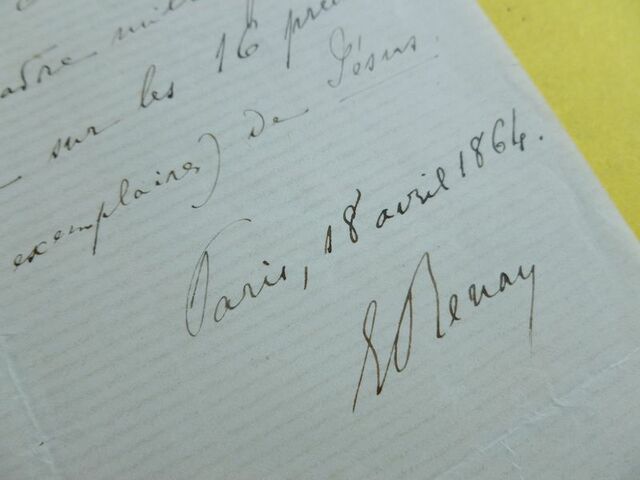 sur les 16
exemplaires) de Jésus.
Paris, 18 avril 1864.
E Renan